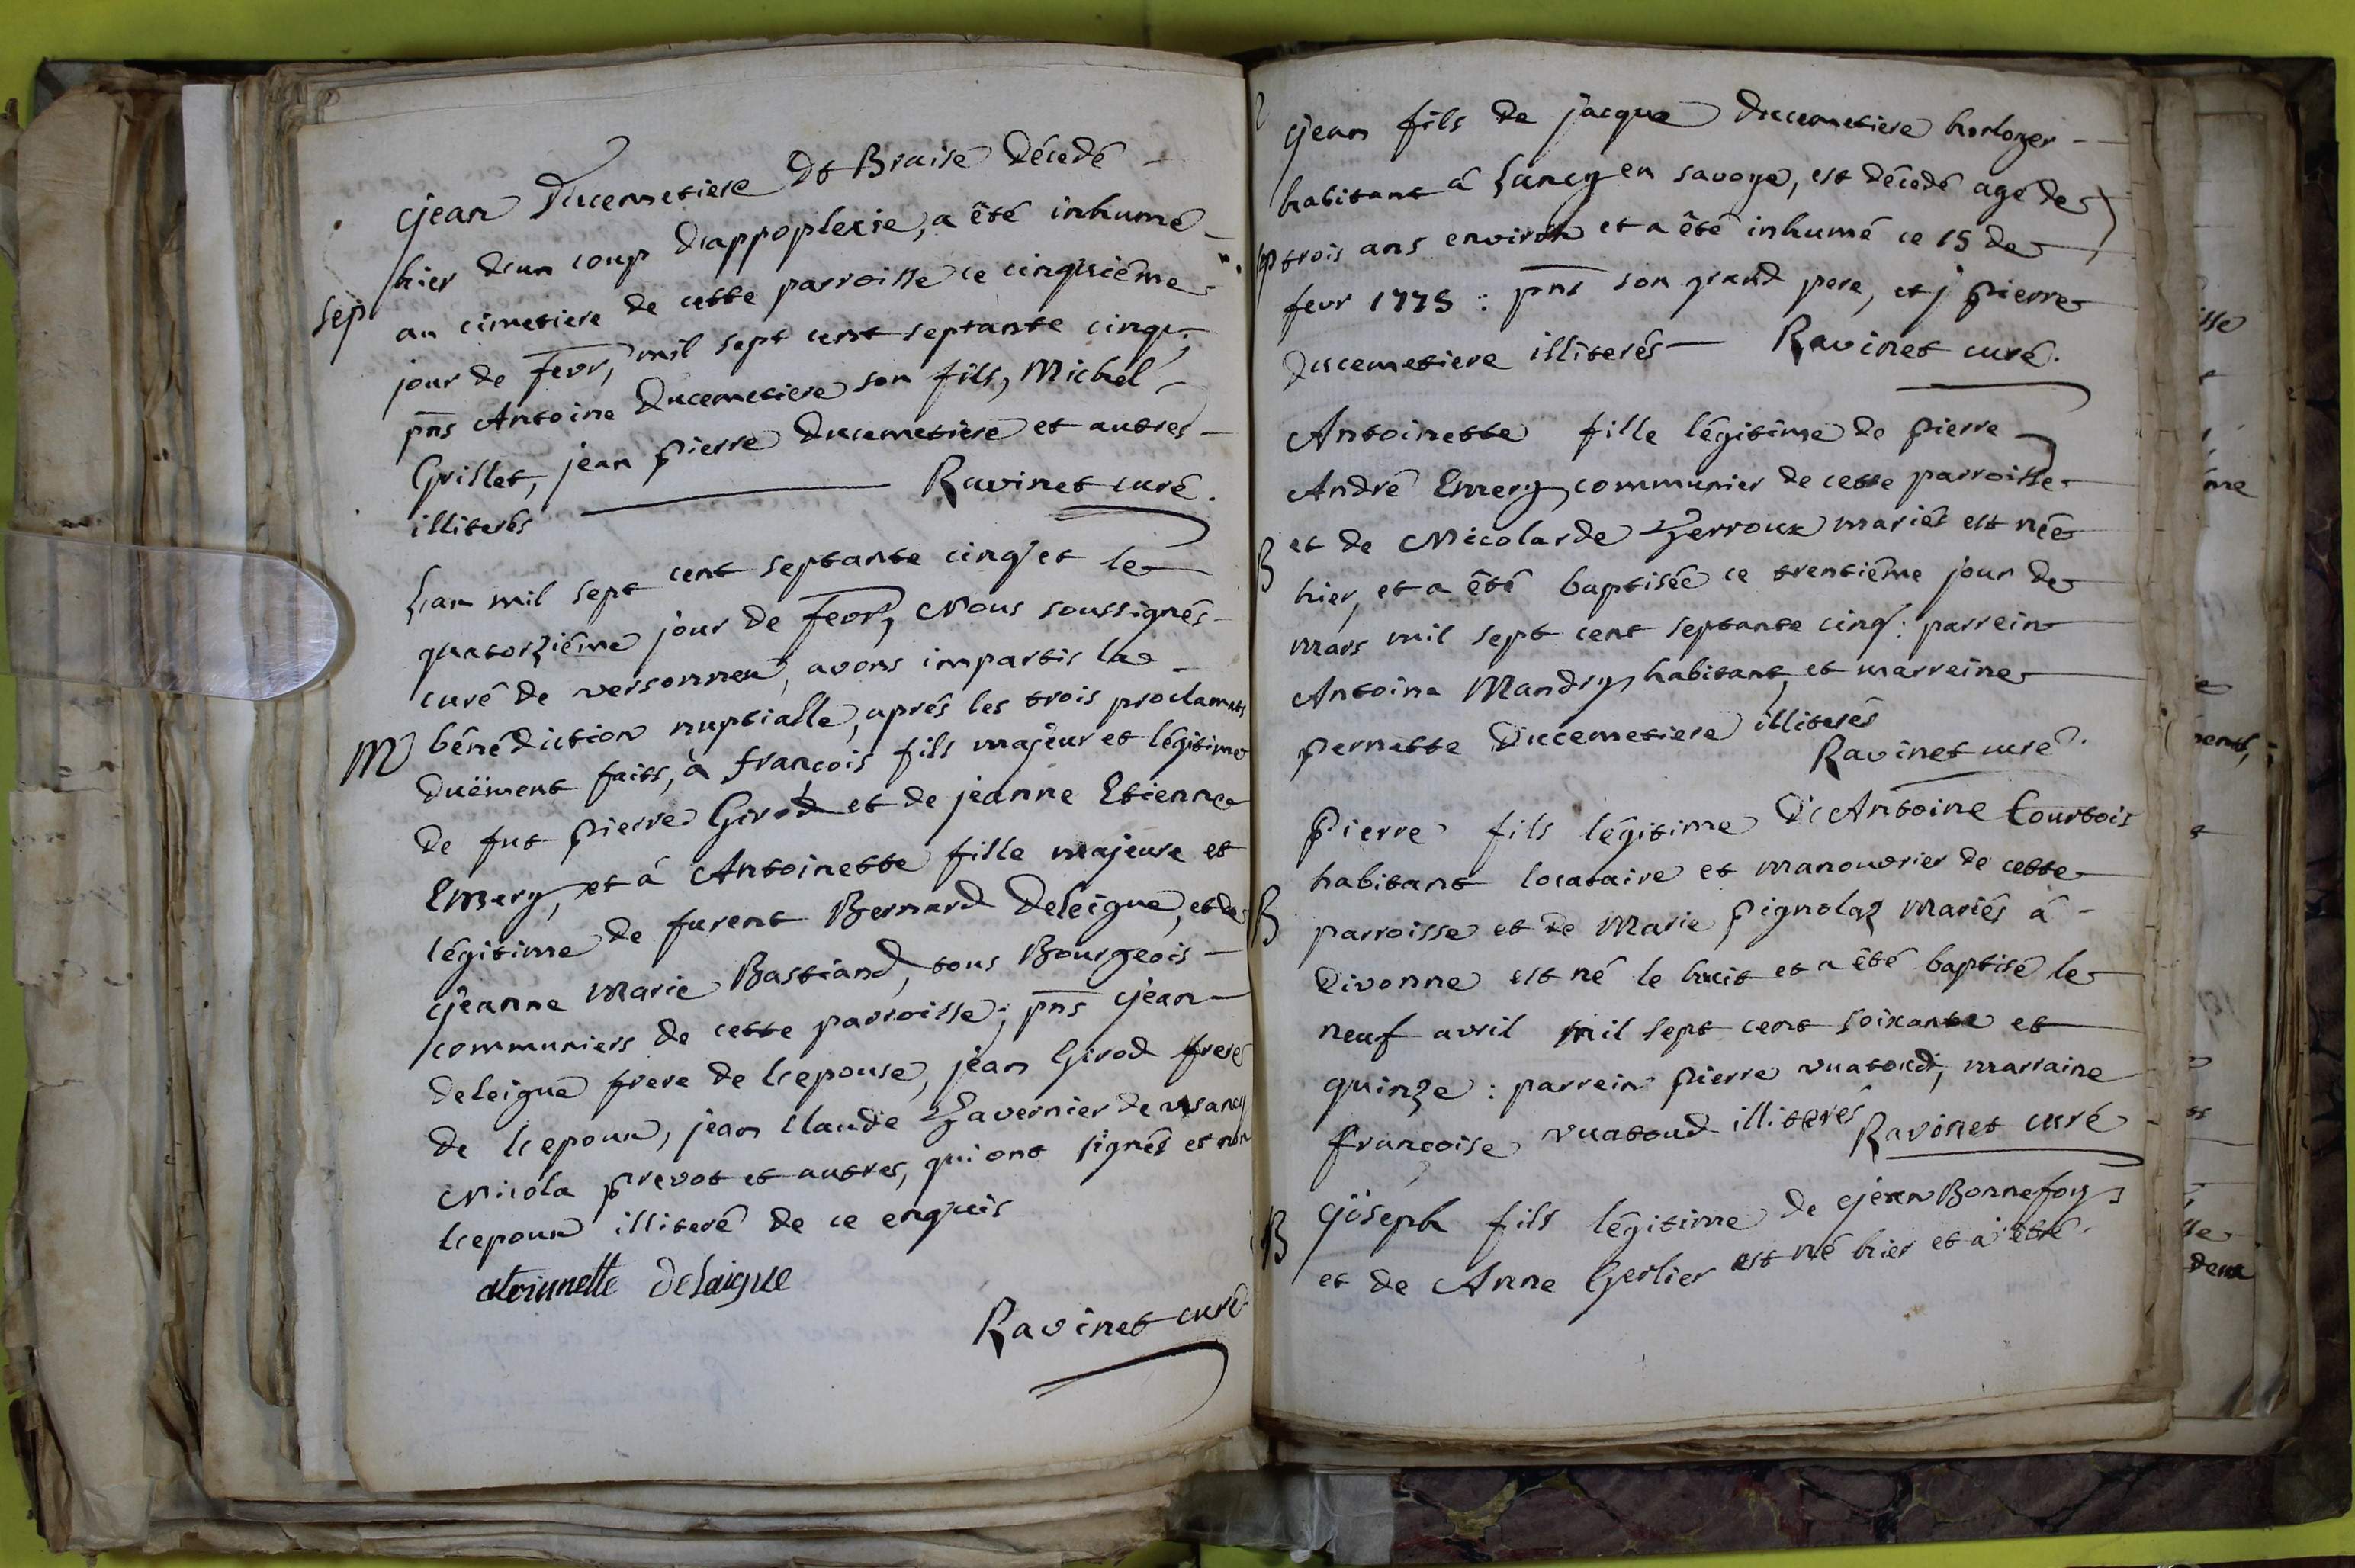 jean Ducemetiere dt Braise décedé
hier d'un coup d'appoplexie, a été inhumé
Sep
au cimetiere de cette parroisse ce cinquiéme
jour de fevr, mil sept cent septante cinq,
pns Antoine Ducemetiere son fils, Michel
Grillet, jean pierre Ducemetiere et autres
illiterés Ravinet curé.
L'an mil sept cent septante cinq et le
quatorziéme jour de fevr, Nous soussignés
curé de versonnex, avons impartis la
M
bénédiction nuptialle, aprés les trois proclamats
duëment faits, à françois fils majeur et légitime
de fut pierre Girod et de jeanne Etienne
Emery, et á Antoinette fille majeure et
légitime de furent Bernard Deleigue, et de
jeanne Marie Bastiand, tous Bourgeois
communiers de cette parroisse; pns jean
deleigue frere de l'epouse, jean Girod frere
de l'epoux, jean Claude Tavernier de
Nicola prevot et autres, qui ont signés et non
l'epoux illiteré de ce enquis
delaigue
Ravinet curé
jean fils de jacque Ducemetiere horloger
habitant á Lancy en savoye, est décedé agé de
Sp
trois ans environ et a été inhumé ce 15 de
fevr 1775 : pns son grand pere, et j pierre
Ducemetiere illiterés Ravinet curé.
Antoinette fille légitime de pierre
André Emery, communier de cette parroisse
B
et de Nicolarde Perroux mariés est née
hier, et a été baptisée ce trentiéme jour de
mars mil sept cent septante cinq : parrein
Antoine Mandry habitant, et marreine
pernette Ducemetiere illiterés
Ravinet curé.
Pierre fils légitime d'Antoine Courtois
habitant locataire et manouvrier de cette
B
parroisse et de Marie pignolaz mariés á
Divonne est né le huit et a été baptisé le
neuf avril mil sept cent soixante et
quinze : parrein pierre vuatoud, marraine
françoise vuatoud illiterés Ravinet curé
B
joseph fils légitime de jean Bonnefoy
et de Anne Gerlier est né hier et a été